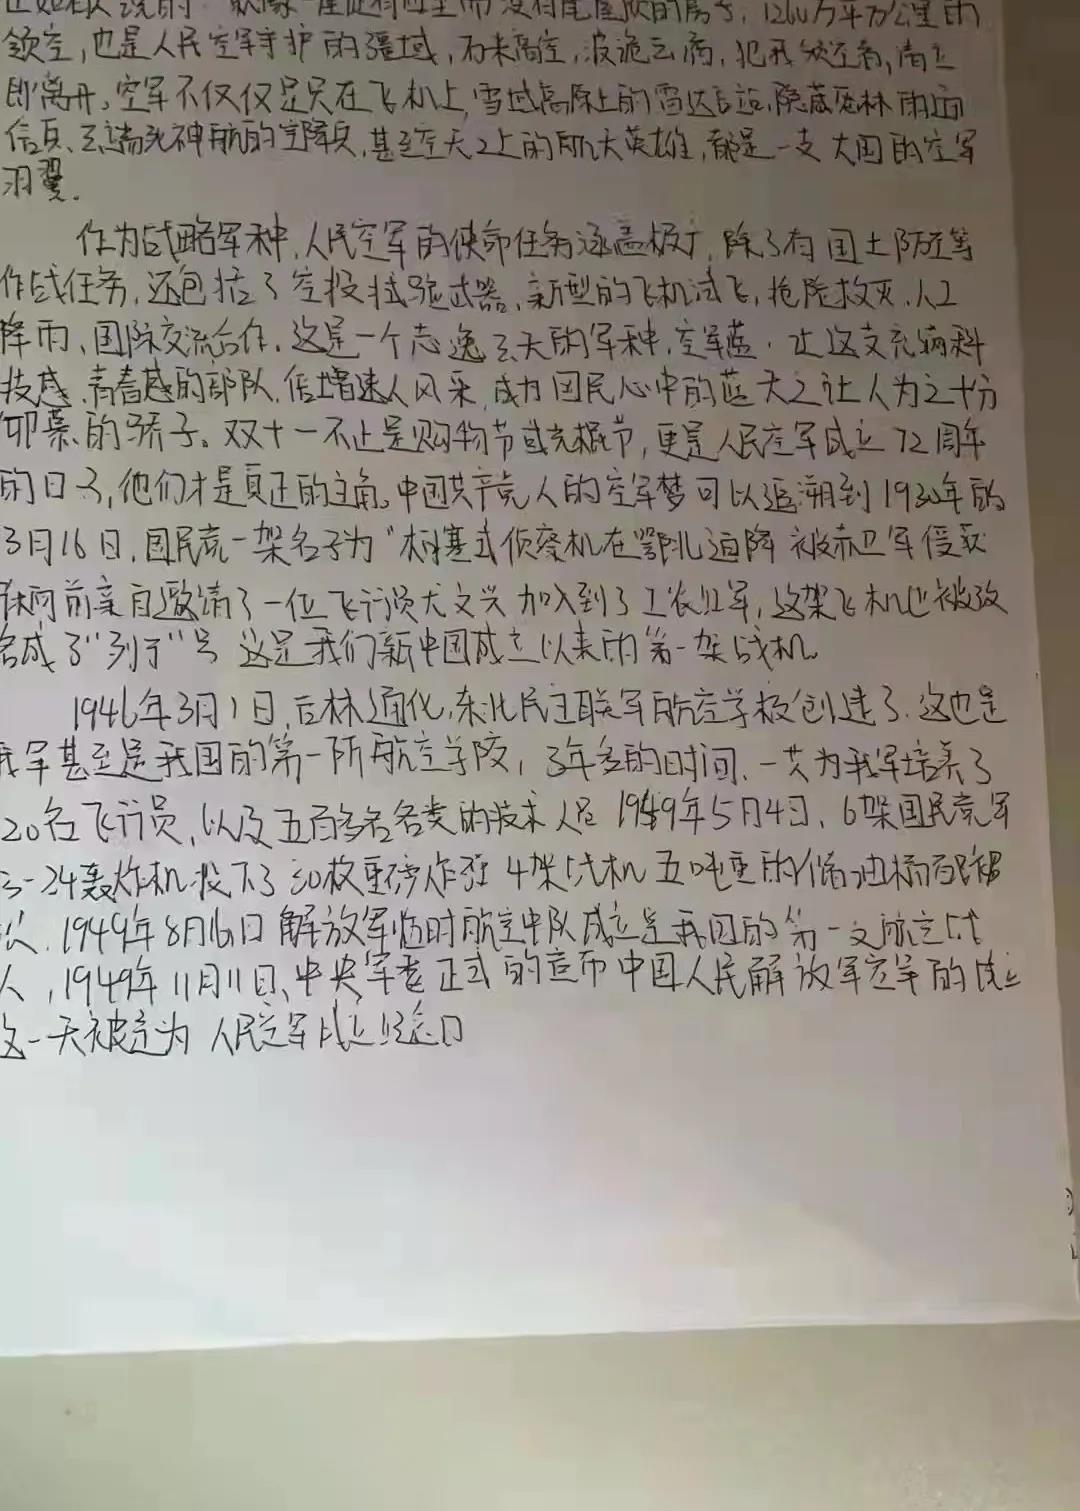 正如有人说的 就像一座建有四壁而没有尾屋顶的房子，1260万平方公里的
领空，也是人民空军守护的疆域，万米高空，波诡云谲，犯我领空者，请立
即离开。空军不仅仅是只在飞机上，雪域高原上的雷达站，隐蔽密林
信兵、云端神航的空降兵，甚至空天之上的航天英雄，都是一支大国的空军
羽翼.
作为战略军种，人民空军的使命任务涵盖极广，除了有国土防空等
作战任务，还包括了空投试验武器、新型的飞机试飞，抢险救灾、人工
降雨、国际交流合作，这是一个志逸云天的军种，空军蓝，让这支充满科
技感、青春感的部队，倍增迷人风采，成为国民心中的蓝天之 让人为之十分
仰慕的骄子。双十一不止是购物节或光棍节，更是人民空军成立72周年
的日子，他们才是真正的主角。中国共产党人的空军梦可以追溯到1930年的
3月16日，国民党一架名字为“柯塞式侦察机在鄂北迫降 被赤卫军俘获
前亲自邀请了一位飞行员龙文光 加入到了工农红军，这架飞机也被改
名成了“列宁”号 这是我们新中国成立以来的第一架战机
1946年3月1日，吉林通化，东北民主联军航空学校创建了，这也是
我军甚至是我国的第一所航空学院，3年多的时间，一共为我军培养了
20名飞行员，以及五百多名各类的技术人员 1949年5月4日，6架国民党军
-24轰炸机投下了30枚重磅炸弹 4架战机 五吨重的储油桶都被
1949年8月16日 解放军临时航空中队成立是我国的第一支航空
人，1949年11月11日、中央军委正式的宣布中国人民解放军空军的成立
这一天被定为 人民空军成立纪念日